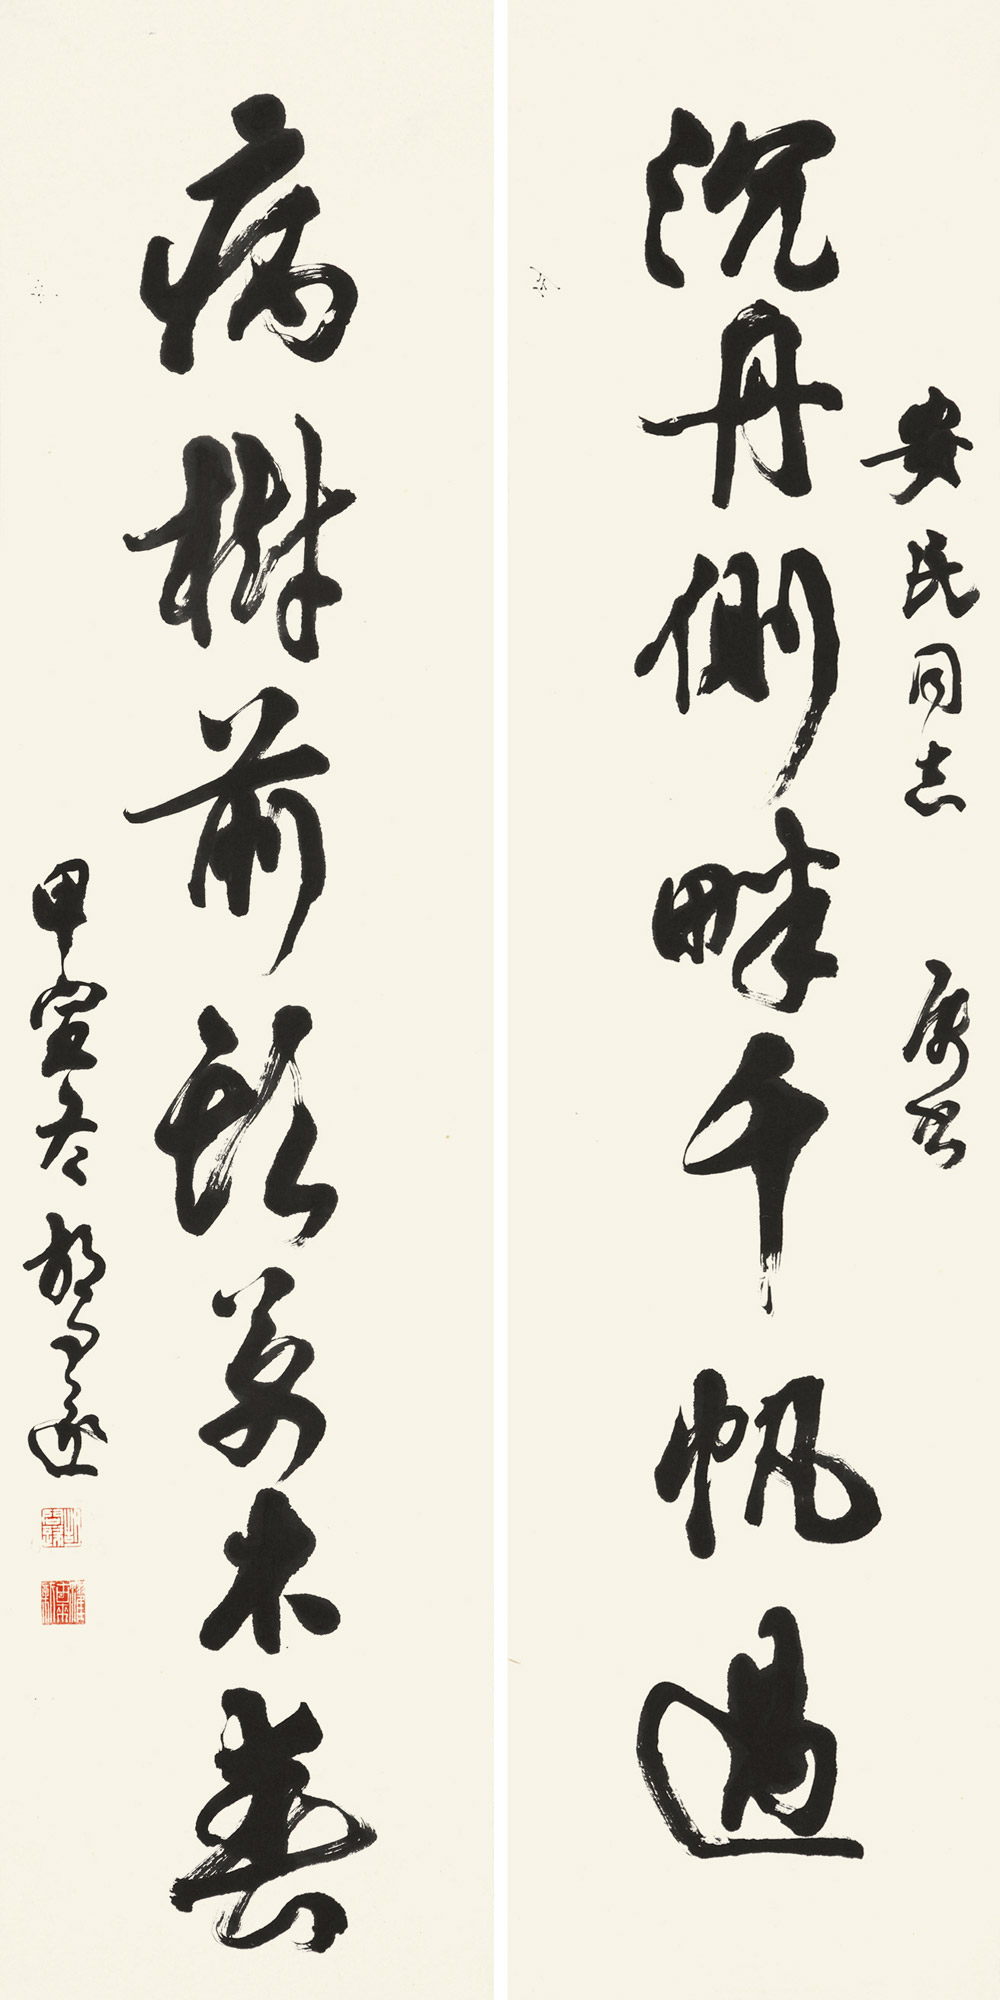 安民同志 屬書
沉舟側畔千帆過
病樹前頭萬木春
甲寅冬 胡問遂